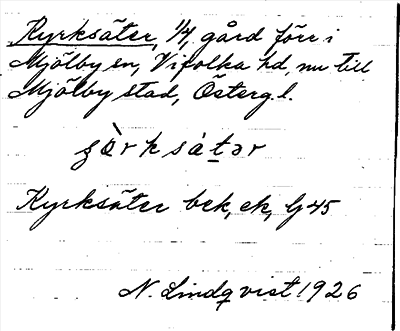 Kyrksäter, 1/4, gård förr i
Mjölby sn, Vifolka hd, nu till
Mjölby stad, Österg. l.
Kyrksäter bek, ek, G 45
N. Lindqvist 1926